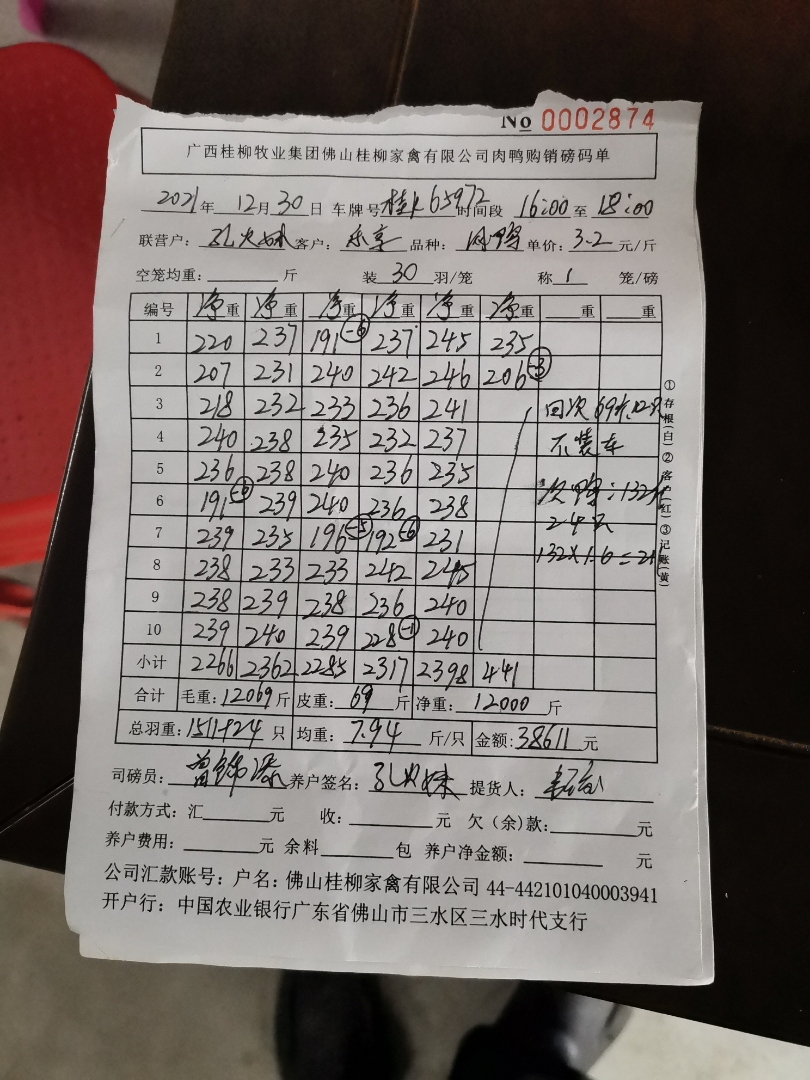 No 0002874
广西桂柳牧业集团佛山桂柳家禽有限公司肉鸭购销磅码单
2021年 12月30日 车牌号 桂K65972 时间段 16:00 至 18:00
联营户: 孔火妹 客户: 乐享 品种: 肉鸭 单价: 3.2 元/斤
空笼均重: 斤 装 30 羽/笼 称 1 笼/磅
编号 净重 净重 净重 净重 净重 净重 重 重
1 220 237 191 -6 237 245 235
2 207 231 240 242 246 206 -3
3 218 232 233 236 241 回次 69斤 12只
4 240 238 235 232 237 不装车
5 236 238 240 236 235
6 191 -6 239 240 236 238 次鸭: 132斤
7 239 235 196 -5 192 -6 231 24只
8 238 233 233 242 245 132×1.6=211
9 238 239 238 236 240
10 239 240 239 228 -1 240
小计 2266 2362 2285 2317 2398 441
合计 毛重: 12069 斤 皮重: 69 斤 净重: 12000 斤
总羽重: 1511+24 只 均重: 7.94 斤/只 金额: 38611 元
司磅员: 养户签名: 孔火妹 提货人:
付款方式: 汇 元 收: 元 欠(余)款: 元
养户费用: 元 余料 包 养户净金额: 元
公司汇款账号: 户名: 佛山桂柳家禽有限公司 44-442101040003941
开户行: 中国农业银行广东省佛山市三水区三水时代支行
①存根(白)②客户(红)③记账(黄)